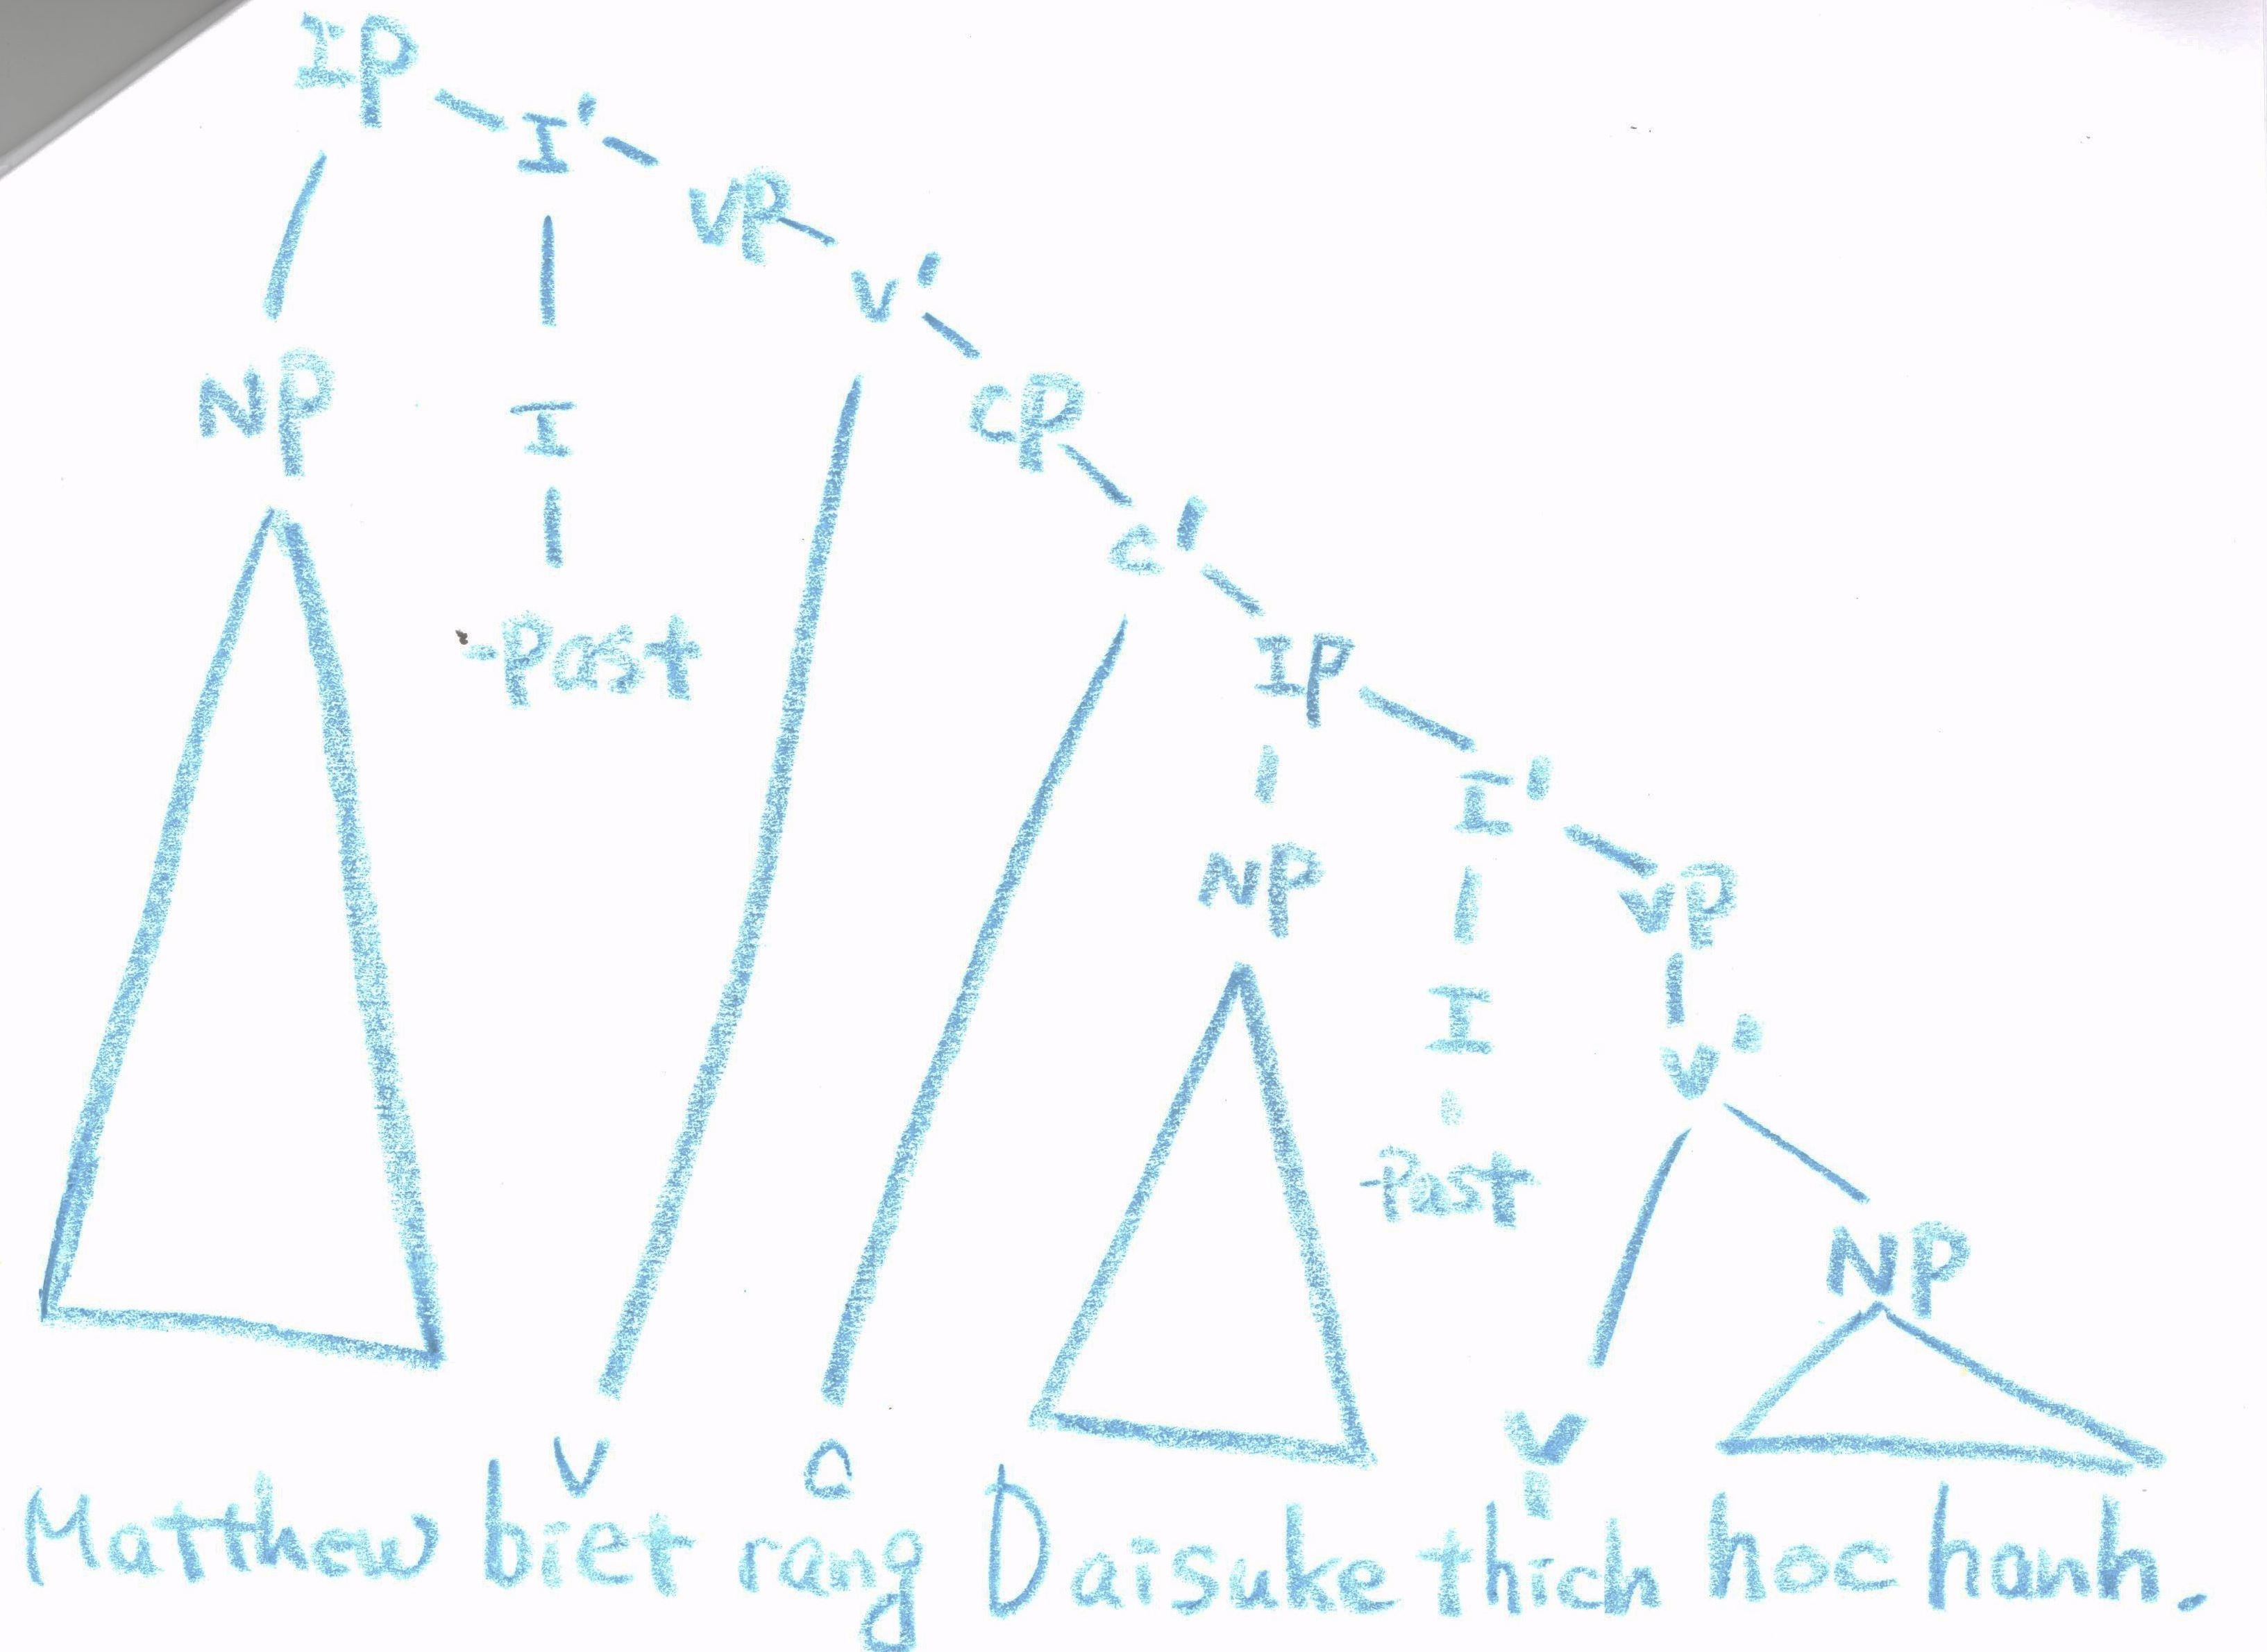 IP
I'
VP
V'
NP
I
CP
-Past
C'
IP
I'
NP
VP
I
V'
-Past
NP
V C V
Matthew biet rang Daisuke thich hoc hanh.